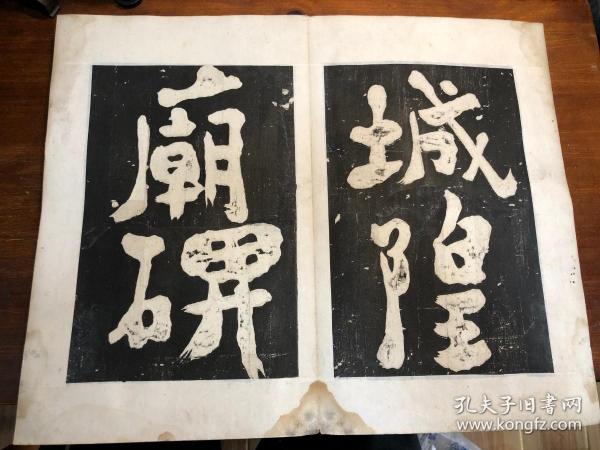 城隍
廟碑
孔夫子旧书网
www.kongfz.com